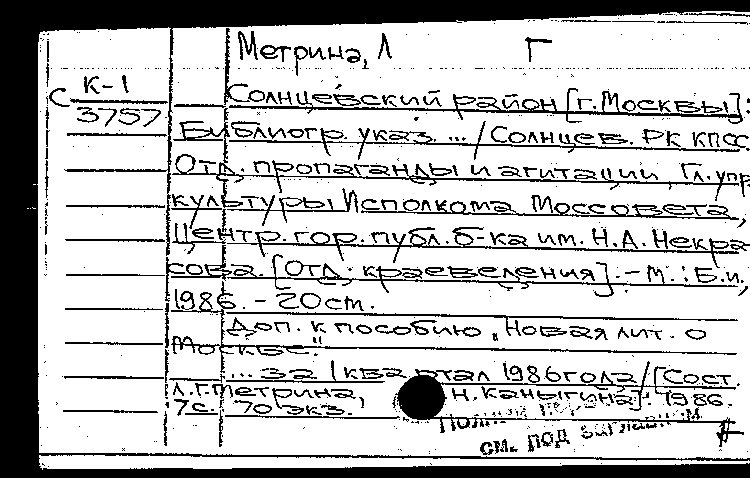 Метрина, Л Г
К-1
С 3757
Солнцевский район [г.Москвы]:
Библиогр. указ. ... / Солнцев. РК КПСС
Отд. пропаганды и агитации, Гл. упр
культуры Исполкома Моссовета,
Центр. гор. публ. б-ка им. Н.А. Некра
сова. [Отд. краеведения]. - М. : Б.и.,
1986. - 20 см.
Доп. к пособию „Новая лит. о
Москве."
... за I квартал 1986 года / [Сост.
Л.Г. Метрина, Н. Каныгина]. 1986.
7 с. 70 экз.
см. под заглавием